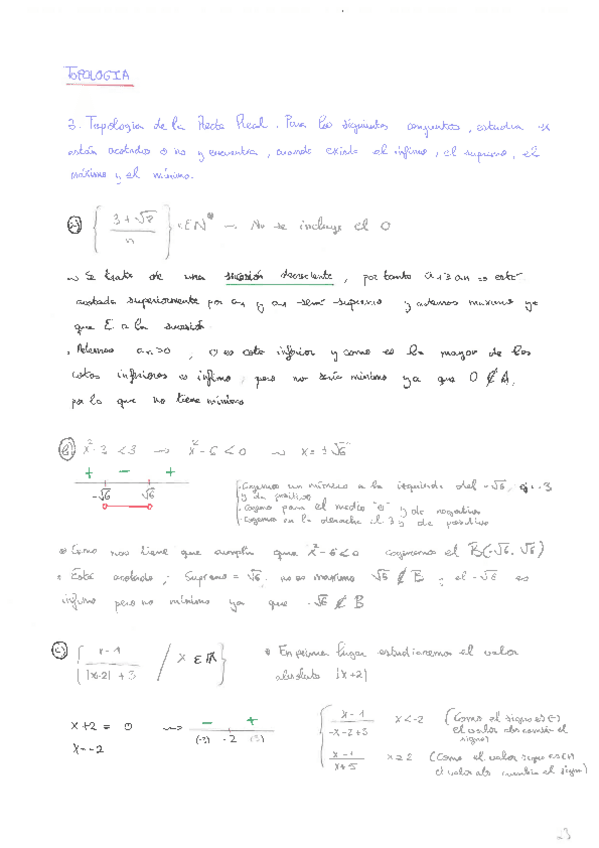 TOPOLOGIA
3. Topología de la Recta Real. Para los siguientes conjuntos, estudia si
están acotados o no y encuentra, cuando exista el ínfimo, el supremo, el
máximo y el mínimo.
a) { (3+√2)/n } n∈N* → No se incluye el 0
→ Se trata de una sucesión decreciente, por tanto a₁≥an ⇒ está
acotada superiormente por a₁ y a₁ será supremo y además máximo ya
que ∈ a la sucesión.
• Además an>0, 0 es cota inferior y como es la mayor de las
cotas inferiores es ínfimo, pero no sería mínimo ya que 0 ∉ A,
por lo que no tiene mínimo
b) x²-3 <3 → x²-6<0 → x=±√6
+ - +
-√6 √6
Cogemos un número a la izquierda del -√6, ej: -3
y da positivo
Cogemos para el medio "0" y da negativo
Cogemos en la derecha el 3 y da positivo
• Como nos tiene que cumplir que x²-6<0 cogeremos el B(-√6, √6)
• Está acotado; Supremo = √6, no es máximo √6 ∉ B y el -√6 es
ínfimo pero no mínimo ya que -√6 ∉ B
c) { x-1 / |x+2|+3 / x∈R } • En primer lugar estudiaremos el valor
absoluto |x+2|
x+2 = 0 → - +
(-3) -2
x=-2
x-1 / -x-2+3 x<-2 (Como el signo es (-)
el valor abs cambia el
signo)
x-1 / x+5 x≥2 (Como el valor signo es (+)
el valor abs cambia el signo)
23